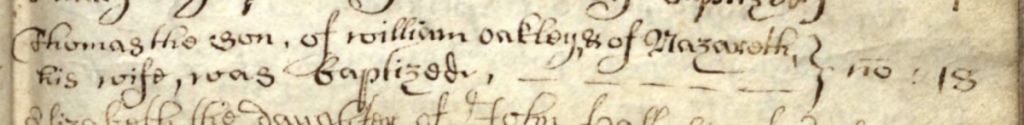 Thomas the Son, of william oakley, & of Nazareth,
his wife, was Baptized, no: 18
Elizabeth the daughter of John